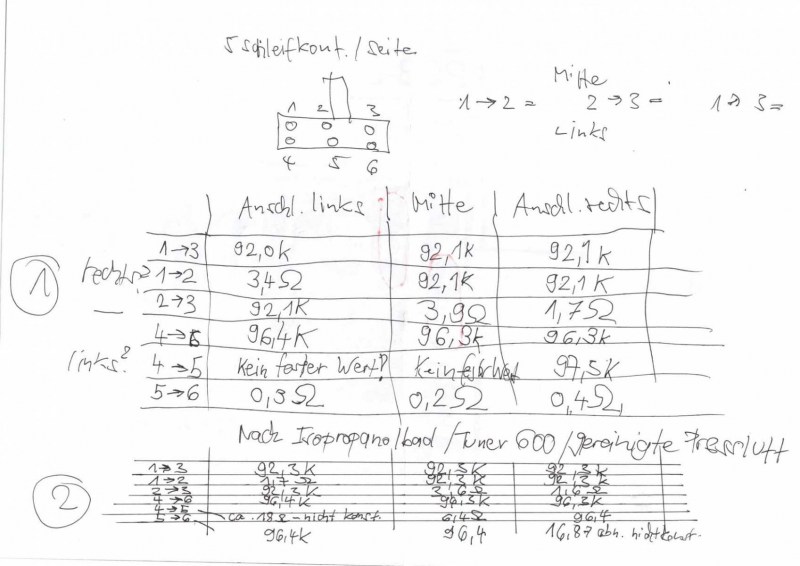 5 Schleifkont./Seite
Mitte
1→2 = 2→3 = 1→3=
Links
1 2 3
4 5 6
Anschl. links Mitte Anschl. rechts
1→3 92,0k 92,1k 92,1k
1 rechts? 1→2 3,4Ω 92,1k 92,1k
— 2→3 92,1k 3,9Ω 1,7Ω
4→6 96,4k 96,3k 96,3k
links? 4→5 Kein fester Wert? Kein fester Wert 97,5k
5→6 0,3Ω 0,2Ω 0,4Ω
Nach Isopropanolbad/Tuner 600/gereinigte Pressluft
2
1→3 92,3k 92,3k 92,3k
1→2 1,7Ω 92,3k 92,3k
2→3 92,3k 3,6Ω 1,6Ω
4→6 96,4k 96,3k 96,3k
4→5 ca. 18Ω – nicht konst. 6,4Ω 96,4
5→6 96,4k 96,4 16,87 abn. nicht konst.